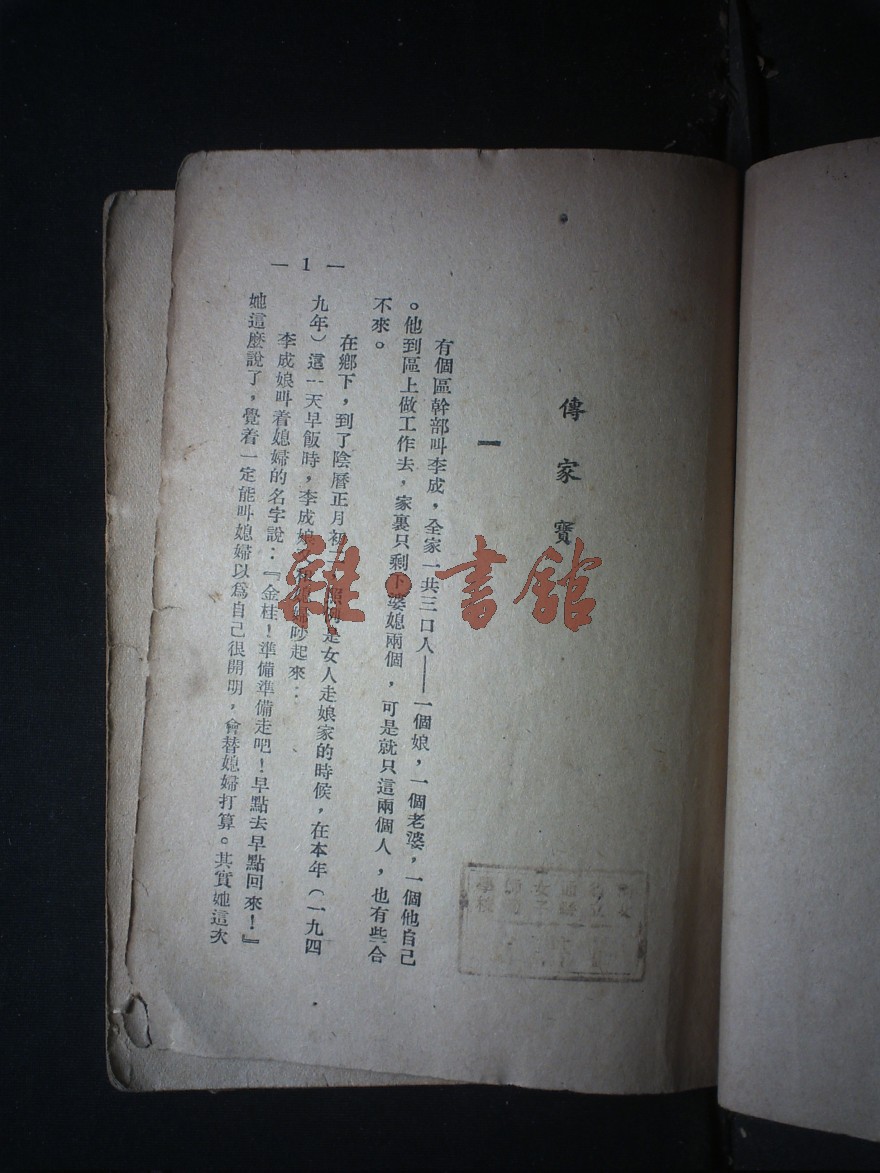 傳家寶
一
有個區幹部叫李成，全家一共三口人——一個娘，一個老婆，一個他自己
。他到區上做工作去，家裏只剩下婆媳兩個，可是就只這兩個人，也有些合
不來。
在鄉下，到了陰曆正月初二，照例是女人走娘家的時候，在本年（一九四
九年）這一天早飯時，李成娘又和媳婦吵起來：
李成娘叫着媳婦的名字說：『金桂！準備準備走吧！早點去早點回來！』
她這麼說了，覺着一定能叫媳婦以爲自己很開明，會替媳婦打算。其實她這次
— 1 —
雜·書館